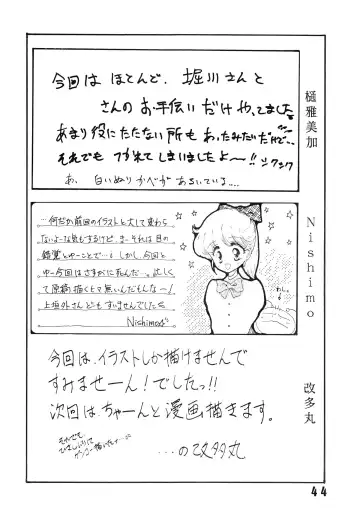 今回は ほとんど、堀川さんと
さんの お手伝い だけ やってました
あまり役にたたない所も あったみたいだけど…
それでも つかれてしまいましたよ〜!!
あ、白いぬりかべが あるいている…
樋雅美加
…何だか前回のイラストと大して変わら
ないよーな気もするけど まーそれは目の
錯覚とゆーことで…! しかし今回と
ゆー今回はさすがに死んだ…。忙しく
て原稿描くヒマ無いんだもんな〜!
上垣外さんどーもすいませんでした
Nishimo
Nishimo
今回は、イラストしか描けませんで
すみませーん!でしたっ!!
次回は、ちゃーんと漫画描きます。
…の改多丸
改多丸
44